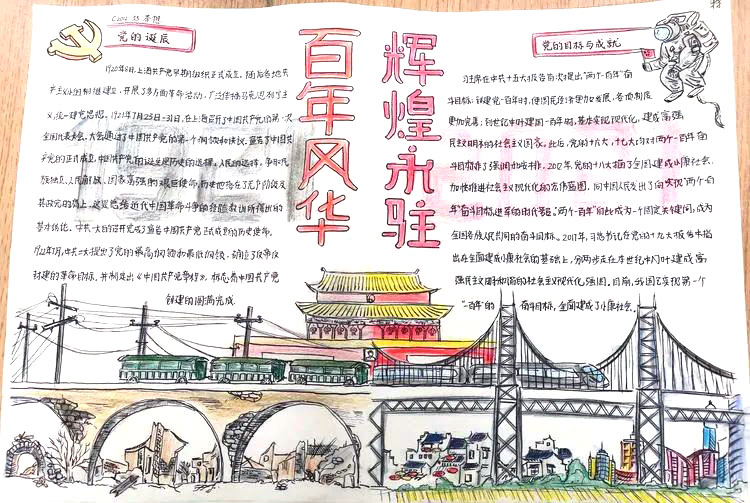 党的诞辰
1920年8月，上海共产党早期组织正式成立，随后各地共
产主义小组相继建立，开展了多方面革命活动，广泛传播马克思列宁主
义，
1921年7月23日—31日，在上海召开了中国共产党的第一次
全国代表大会，大会通过了中国共产党的第一个纲领和决议，宣告了中国共
产党的正式成立，中国共产党的诞生是历史的选择，人民的选择，争取民
族独立、人民解放、国家富强的艰巨使命，
基本结论，中共一大的召开完成了宣告中国共产党正式成立的历史使命，
1922年7月，中共二大提出了党的最高纲领和最低纲领，
封建的革命目标，并制定出《中国共产党章程》，标志着中国共产党
创建的圆满完成
百年风华
辉煌永驻
党的目标与成就
斗目标：到建党一百年时，使国民经济更加发展，各项制度
更加完善；到世纪中叶建国一百年时，基本实现现代化，建成富强
民主文明的社会主义国家。此后，党的十六大，十七大均对两个一百年奋
斗目标作了强调和安排。2012年，党的十八大描了全面建成小康社会，
加快推进社会主义现代化的宏伟蓝图，向中国人民发出了向实现“两个一百
年”奋斗目标进军的时代号召。“两个一百年”自此成为一个固定关键词，成为
全国各族人民共同的奋斗目标。2017年，习总书记在党的十九大报告中指
出在全面建成小康社会的基础上，分两步走在本世纪中叶建成富
强民主文明和谐的社会主义现代化强国。目前，我国已实现第一个
“一百年”的奋斗目标，全面建成了小康社会。